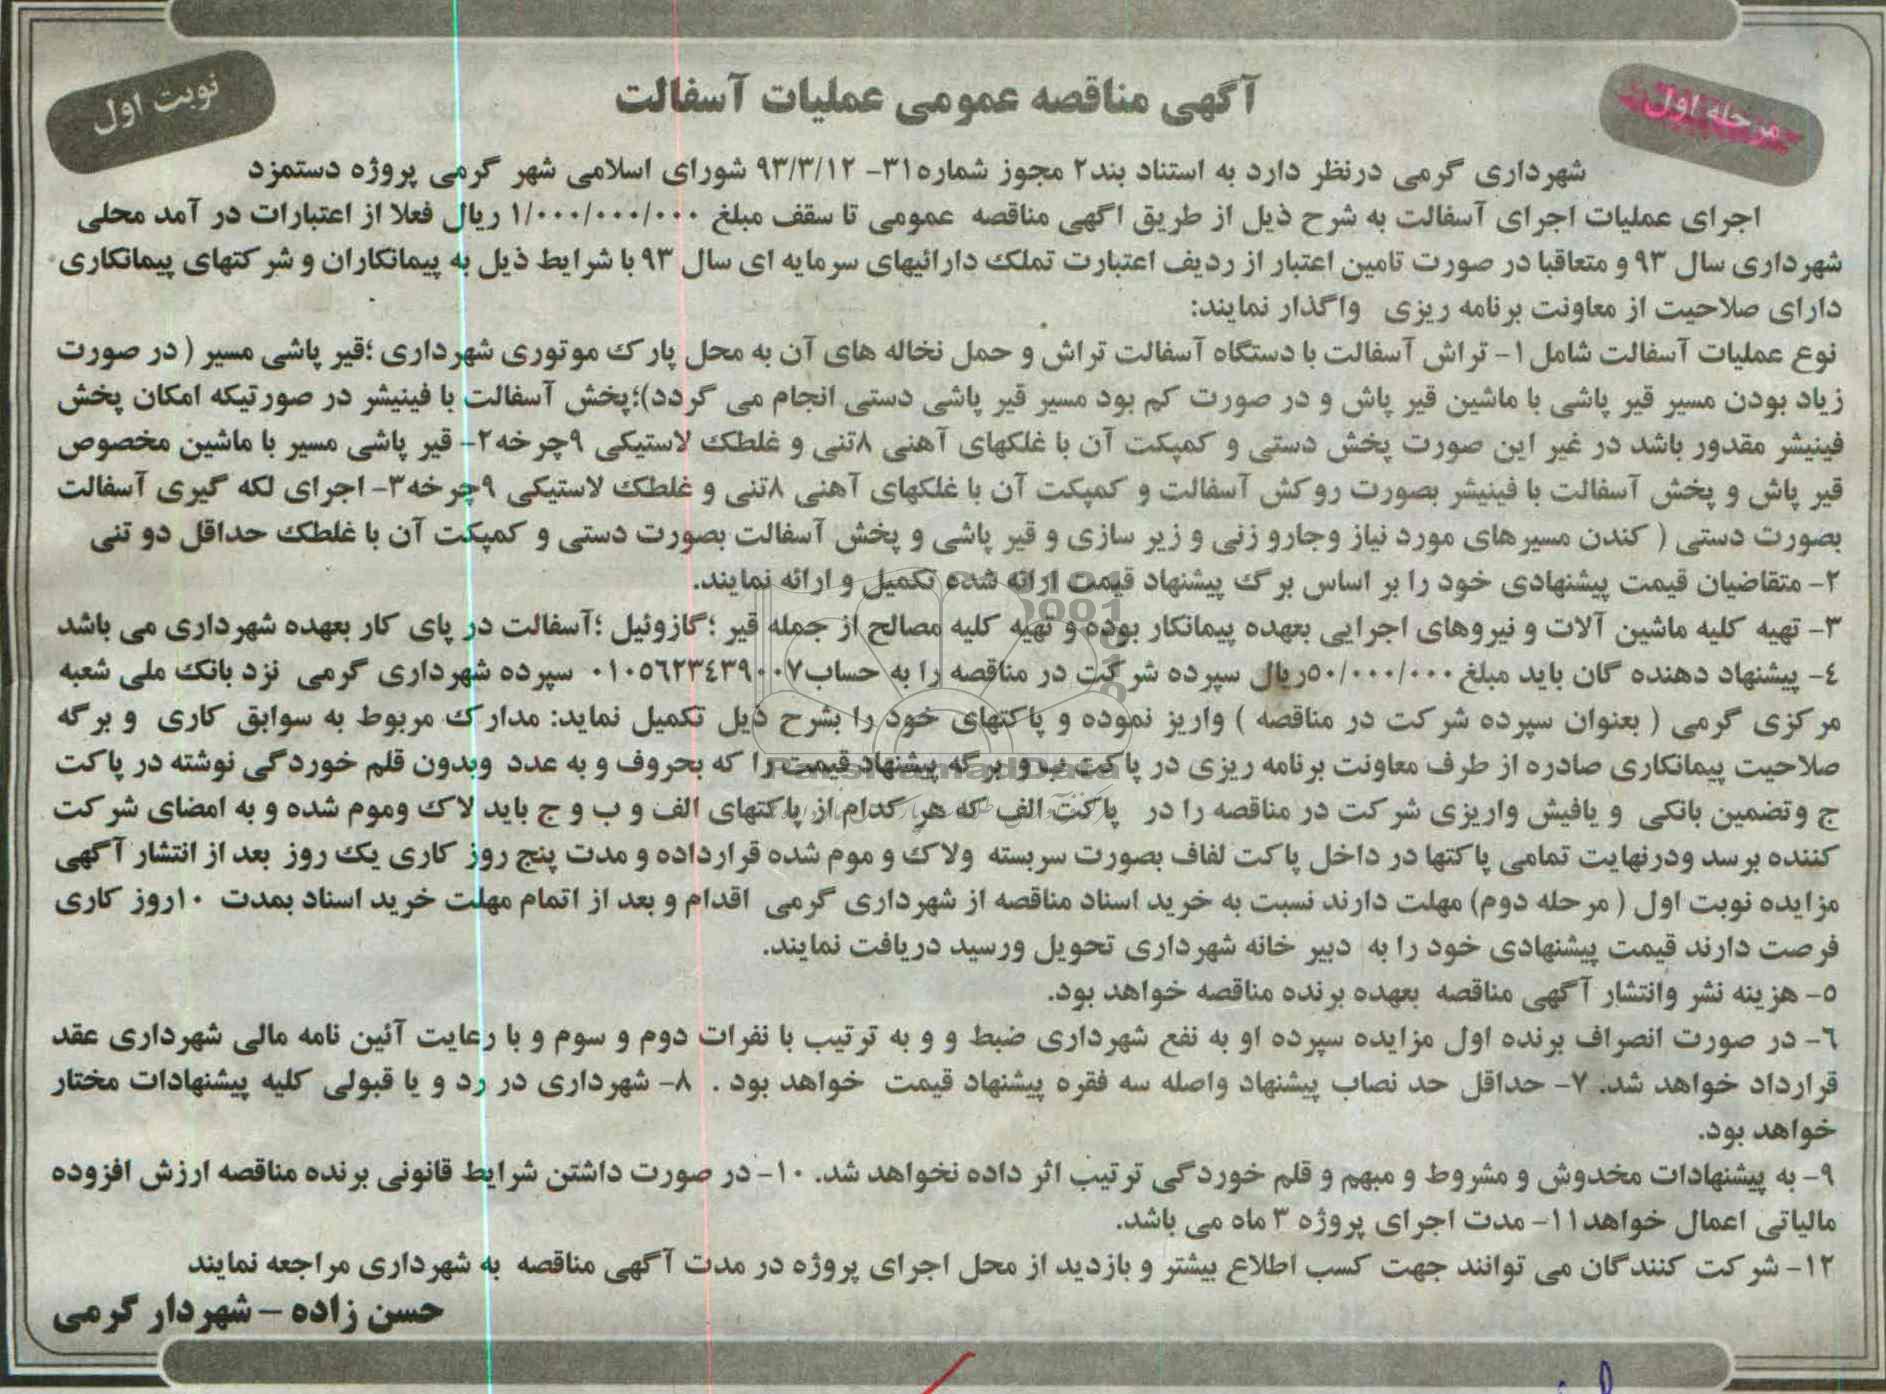 آگهی مناقصه عمومی عملیات آسفالت
مرحله اول
نوبت اول
شهرداری گرمی درنظر دارد به استناد بند۲ مجوز شماره۳۱- ۹۳/۳/۱۲ شورای اسلامی شهر گرمی پروژه دستمزد
اجرای عملیات اجرای آسفالت به شرح ذیل از طریق اگهی مناقصه عمومی تا سقف مبلغ ۱/۰۰۰/۰۰۰/۰۰۰ ریال فعلا از اعتبارات در آمد محلی
شهرداری سال ۹۳ و متعاقبا در صورت تامین اعتبار از ردیف اعتبارت تملک دارائیهای سرمایه ای سال ۹۳ با شرایط ذیل به پیمانکاران و شرکتهای پیمانکاری
دارای صلاحیت از معاونت برنامه ریزی واگذار نمایند:
نوع عملیات آسفالت شامل ۱- تراش آسفالت با دستگاه آسفالت تراش و حمل نخاله های آن به محل پارک موتوری شهرداری ؛قیر پاشی مسیر ( در صورت
زیاد بودن مسیر قیر پاشی با ماشین قیر پاش و در صورت کم بود مسیر قیر پاشی دستی انجام می گردد)؛پخش آسفالت با فینیشر در صورتیکه امکان پخش
فینیشر مقدور باشد در غیر این صورت پخش دستی و کمپکت آن با غلکهای آهنی ۸تنی و غلطک لاستیکی ۹چرخه۲- قیر پاشی مسیر با ماشین مخصوص
قیر پاش و پخش آسفالت با فینیشر بصورت روکش آسفالت و کمپکت آن با غلکهای آهنی ۸تنی و غلطک لاستیکی ۹چرخه۳- اجرای لکه گیری آسفالت
بصورت دستی ( کندن مسیرهای مورد نیاز وجارو زنی و زیر سازی و قیر پاشی و پخش آسفالت بصورت دستی و کمپکت آن با غلطک حداقل دو تنی
۲- متقاضیان قیمت پیشنهادی خود را بر اساس برگ پیشنهاد قیمت ارائه شده تکمیل و ارائه نمایند.
۳- تهیه کلیه ماشین آلات و نیروهای اجرایی بعهده پیمانکار بوده و تهیه کلیه مصالح از جمله قیر ؛گازوئیل ؛آسفالت در پای کار بعهده شهرداری می باشد
۴- پیشنهاد دهنده گان باید مبلغ ۵۰/۰۰۰/۰۰۰ریال سپرده شرکت در مناقصه را به حساب۰۱۰۵۶۲۳۴۳۹۰۰۷ سپرده شهرداری گرمی نزد بانک ملی شعبه
مرکزی گرمی ( بعنوان سپرده شرکت در مناقصه ) واریز نموده و پاکتهای خود را بشرح ذیل تکمیل نماید: مدارک مربوط به سوابق کاری و برگه
صلاحیت پیمانکاری صادره از طرف معاونت برنامه ریزی در پاکت ب و برگه پیشنهاد قیمت را که بحروف و به عدد وبدون قلم خوردگی نوشته در پاکت
ج وتضمین بانکی و یافیش واریزی شرکت در مناقصه را در پاکت الف که هر کدام از پاکتهای الف و ب و ج باید لاک وموم شده و به امضای شرکت
کننده برسد ودرنهایت تمامی پاکتها در داخل پاکت لفاف بصورت سربسته ولاک و موم شده قرارداده و مدت پنج روز کاری یک روز بعد از انتشار آگهی
مزایده نوبت اول ( مرحله دوم) مهلت دارند نسبت به خرید اسناد مناقصه از شهرداری گرمی اقدام و بعد از اتمام مهلت خرید اسناد بمدت ۱۰روز کاری
فرصت دارند قیمت پیشنهادی خود را به دبیر خانه شهرداری تحویل ورسید دریافت نمایند.
۵- هزینه نشر وانتشار آگهی مناقصه بعهده برنده مناقصه خواهد بود.
۶- در صورت انصراف برنده اول مزایده سپرده او به نفع شهرداری ضبط و و به ترتیب با نفرات دوم و سوم و با رعایت آئین نامه مالی شهرداری عقد
قرارداد خواهد شد. ۷- حداقل حد نصاب پیشنهاد واصله سه فقره پیشنهاد قیمت خواهد بود . ۸- شهرداری در رد و یا قبولی کلیه پیشنهادات مختار
خواهد بود.
۹- به پیشنهادات مخدوش و مشروط و مبهم و قلم خوردگی ترتیب اثر داده نخواهد شد. ۱۰- در صورت داشتن شرایط قانونی برنده مناقصه ارزش افزوده
مالیاتی اعمال خواهد۱۱- مدت اجرای پروژه ۳ ماه می باشد.
۱۲- شرکت کنندگان می توانند جهت کسب اطلاع بیشتر و بازدید از محل اجرای پروژه در مدت آگهی مناقصه به شهرداری مراجعه نمایند
حسن زاده - شهردار گرمی
ParsNamadData